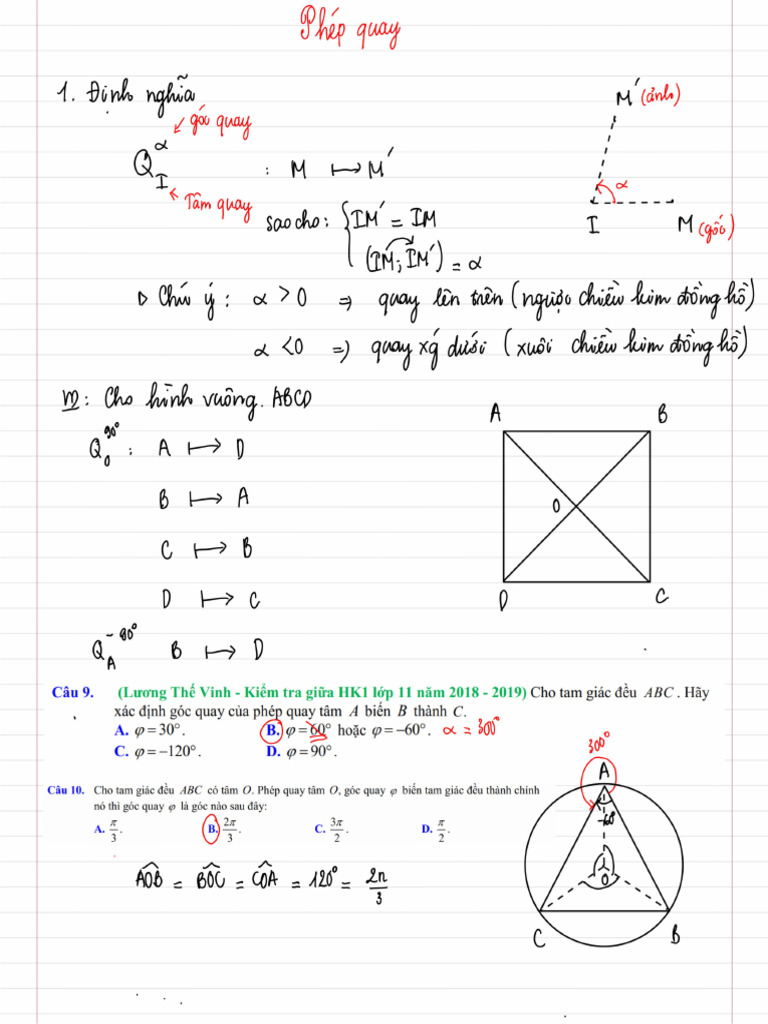 Phép quay
1. Định nghĩa
góc quay
Q α I : M ⟼ M'
Tâm quay
sao cho: { IM' = IM
(IM; IM') = α
M' (ảnh)
α
I M (gốc)
▷ Chú ý: α > 0 => quay lên trên (ngược chiều kim đồng hồ)
α < 0 => quay xg dưới (xuôi chiều kim đồng hồ)
VD: Cho hình vuông. ABCD
Q 90° O : A ⟼ D
B ⟼ A
C ⟼ B
D ⟼ C
Q -90° A B ⟼ D
A B
O
D C
Câu 9. (Lương Thế Vinh - Kiểm tra giữa HK1 lớp 11 năm 2018 - 2019) Cho tam giác đều ABC . Hãy
xác định góc quay của phép quay tâm A biến B thành C.
A. φ = 30° . B. φ = 60° hoặc φ = −60° . α = 300°
C. φ = −120° . D. φ = 90° .
Câu 10. Cho tam giác đều ABC có tâm O. Phép quay tâm O, góc quay φ biến tam giác đều thành chính
nó thì góc quay φ là góc nào sau đây:
A. π/3 . B. 2π/3 . C. 3π/2 . D. π/2 .
AOB = BOC = COA = 120° = 2π/3
300°
A
O
C B